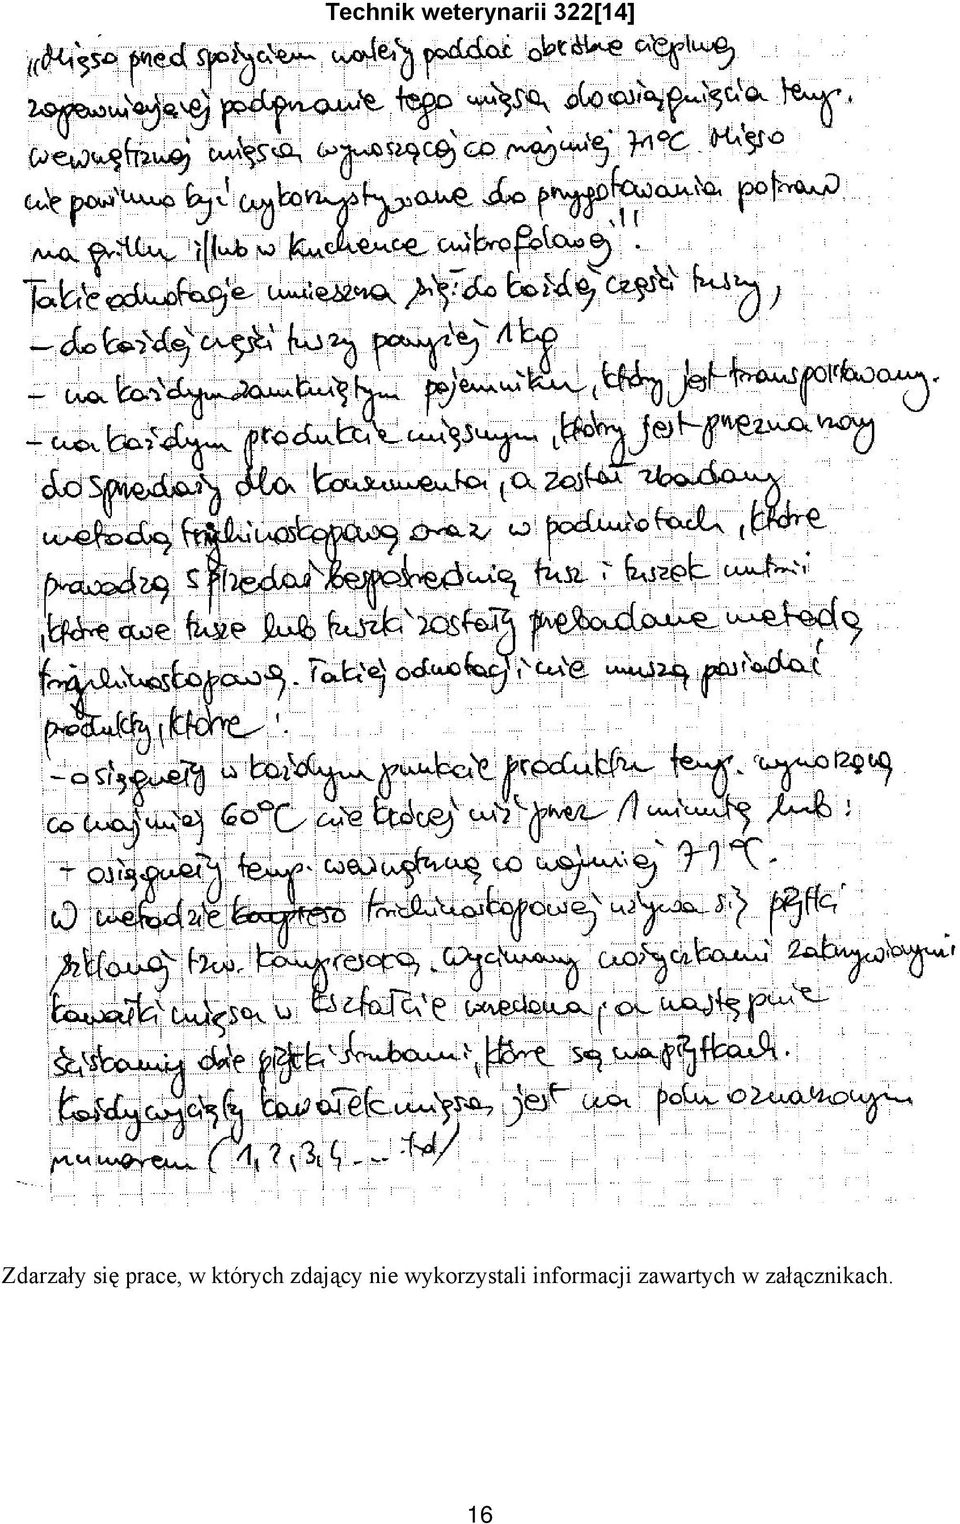 Technik weterynarii 322[14]
„Mięso przed spożyciem należy poddać obróbce cieplnej
zapewniającej podgrzanie tego mięsa do osiągnięcia temp.
wewnętrznej mięsa wynoszącej co najmniej 71°C. Mięso
nie powinno być wykorzystywane do przygotowania potraw
na grillu i/lub w kuchence mikrofalowej"!!
Takie adnotacje umieszcza się: do każdej części tuszy,
- do każdej części tuszy powyżej 1kg
- na każdym zamkniętym pojemniku, który jest transportowany.
- na każdym produkcie mięsnym, który jest przeznaczony
do sprzedaży dla konsumenta, a został zbadany
metodą trichinoskopową oraz w podmiotach, które
prowadzą sprzedaż bezpośrednią tusz i tuszek nutrii
, które owe tusze lub tuszki zostały przebadane metodą
trichinoskopową. Takiej adnotacji nie muszą posiadać
produkty, które:
- osiągnęły w każdym punkcie produktu temp. wynoszącą
co najmniej 60°C nie krócej niż przez 1 minutę lub:
- osiągnęły temp. wewnętrzną co najmniej 71°C.
W metodzie trichinoskopowej używa się płytki
szklanej tzw. kompresorą. Wycinamy nożyczkami zakrzywionymi
kawałki mięsa w kształcie wrzeciona, a następnie
ściskamy dwie płytki śrubami, które są na płytkach.
Każdy wycięty kawałek mięsa, jest na polu oznaczonym
numerem (1,2,3,4 ... itd/
Zdarzały się prace, w których zdający nie wykorzystali informacji zawartych w załącznikach.
16